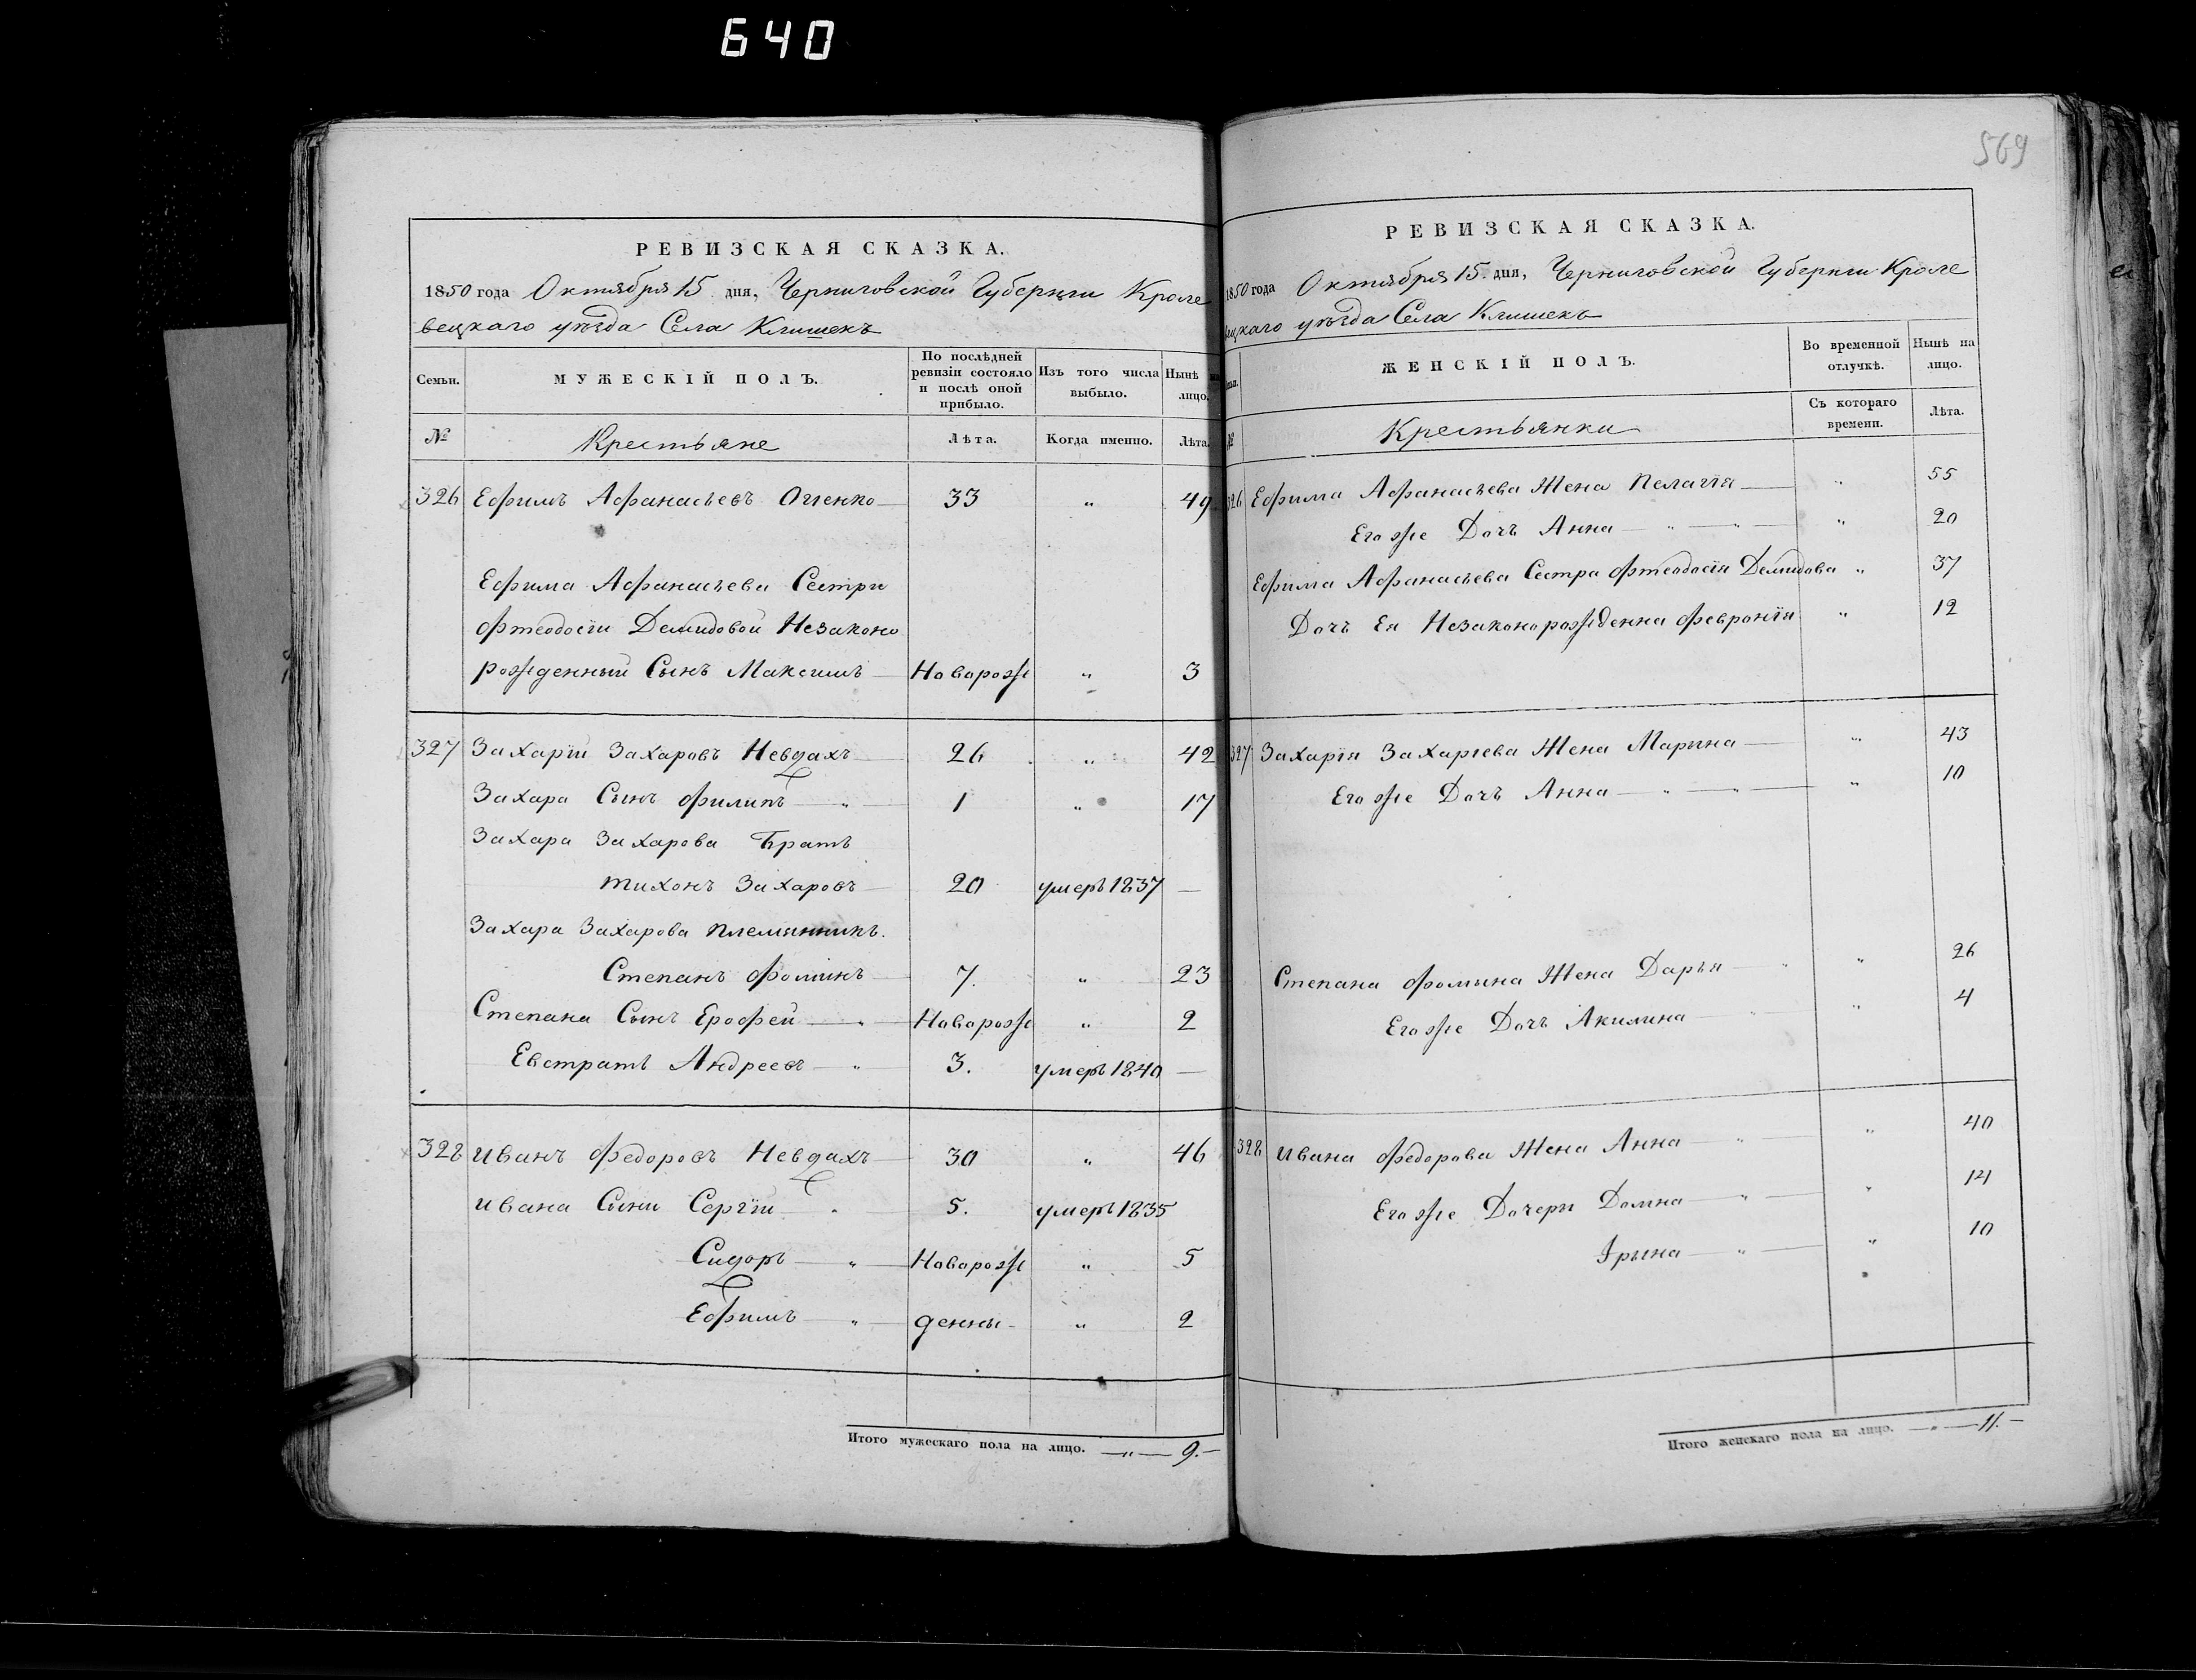 640
569
РЕВИЗСКАЯ СКАЗКА.
1850 года Октября 15 дня, Черниговской Губернги Кроле
вецкаго уѣзда Села Клишекъ
Семьи. МУЖЕСКІЙ ПОЛЪ. По послѣдней ревизіи состояло и послѣ оной прибыло. Изъ того числа выбыло. Нынѣ на лицо.
№ Крестьяне Лѣта. Когда именно. Лѣта.
326 Ефимъ Афанасьевъ 33 " 49
Ефима Афанасьева Сестри
Фтеодосіи Демидовой Незаконо
рожденный Сынъ МаксимъНоворож " 3
327 Захарій Захаровъ Невдахъ 26 " 42
Захара Сынъ Филипъ " 1 " 17
Захара Захарова Братъ
Тихонъ Захаровъ 20 умеръ 1837 —
Захара Захарова Племянникъ.
Степанъ Фоминъ 7. " 23
Степана Сынъ Ерофей " Новорож " 2
Евстратъ Андреевъ " 3. умеръ 1840 —
328 Иванъ Федоровъ Невдахъ 30 " 46
Ивана Сыни Сергій " 5. умеръ 1835
Сидоръ " Новорож " 5
Ефимъ " денны " 2
Итого мужескаго пола на лицо. — " — 9. —
РЕВИЗСКАЯ СКАЗКА.
1850 года Октября 15. дня, Черниговской Губернги Кроле
вецкаго уѣзда Села Клишекъ
ЖЕНСКІЙ ПОЛЪ. Во временной отлучкѣ. Нынѣ на лицо.
№ Крестьянки Съ котораго времени. Лѣта.
326 Ефима Афанасьева Жена Пелагія " 55
Его же Дочъ Анна " " " 20
Ефима Афанасьева Сестра Фтеодосія Демидова " 37
Дочъ Ея Незаконорожденна Февронія " 12
327 Захарія Захарьева Жена Марина " 43
Его же Дочъ Анна " " " 10
Степана Фомина Жена Дарья " 26
Его же Дочъ Акилина " 4
328 Ивана Федорова Жена Анна " " 40
Его же Дочери Домна " " 14
Ірина " " 10
Итого женскаго пола на лицо. — " — 11. —